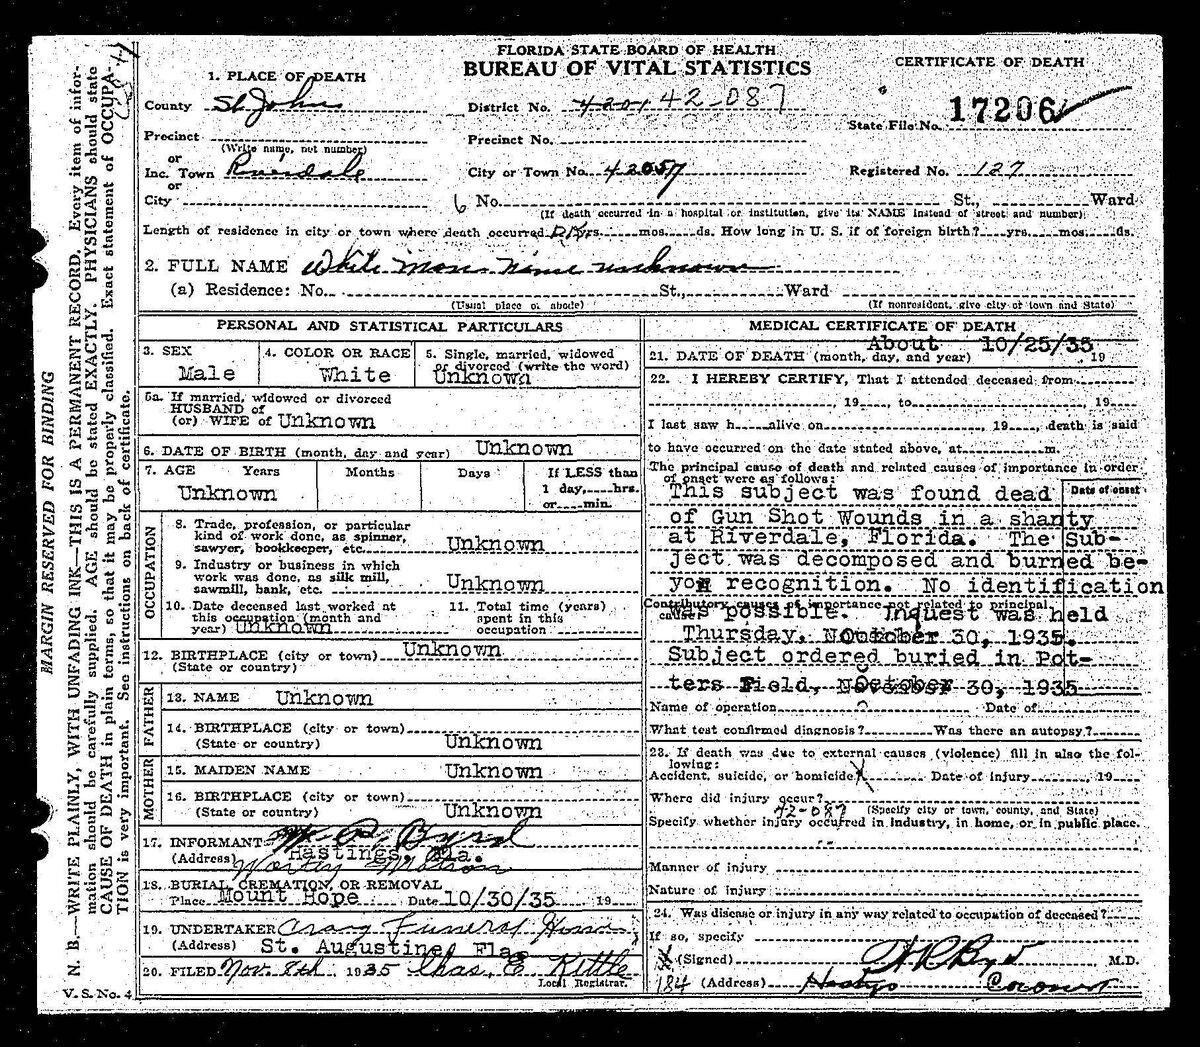 FLORIDA STATE BOARD OF HEALTH
BUREAU OF VITAL STATISTICS
CERTIFICATE OF DEATH
1. PLACE OF DEATH
County St Johns
District No. 4201 42-087
State File No. 17206
Precinct
(Write name, not number)
Precinct No.
or
Inc. Town Riverdale
City or Town No. 42057
Registered No. 127
or
City
6 No. St., Ward
(If death occurred in a hospital or institution, give its NAME instead of street and number)
Length of residence in city or town where death occurred D.K. yrs. mos. ds. How long in U. S. if of foreign birth? yrs. mos. ds.
2. FULL NAME White man name unknown
(a) Residence: No. St., Ward
(Usual place of abode) (If nonresident, give city or town and State)
PERSONAL AND STATISTICAL PARTICULARS
3. SEX
Male
4. COLOR OR RACE
White
5. Single, married, widowed
or divorced (write the word)
Unknown
5a. If married, widowed or divorced
HUSBAND of
(or) WIFE of Unknown
6. DATE OF BIRTH (month, day and year) Unknown
7. AGE Years Months Days If LESS than
1 day, hrs.
or min.
Unknown
OCCUPATION
8. Trade, profession, or particular
kind of work done, as spinner,
sawyer, bookkeeper, etc. Unknown
9. Industry or business in which
work was done, as silk mill,
sawmill, bank, etc. Unknown
10. Date deceased last worked at
this occupation (month and
year) Unknown
11. Total time (years)
spent in this
occupation
12. BIRTHPLACE (city or town) Unknown
(State or country)
FATHER
13. NAME Unknown
14. BIRTHPLACE (city or town)
(State or country) Unknown
MOTHER
15. MAIDEN NAME Unknown
16. BIRTHPLACE (city or town)
(State or country) Unknown
17. INFORMANT Byrd
(Address) Hastings, Fla.
18. BURIAL, CREMATION, OR REMOVAL
Place Mount Hope Date 10/30/35 19
19. UNDERTAKER Craig Funeral Home
(Address) St. Augustine, Fla
20. FILED Nov. 8th 1935 Chas. E. Kettle
Local Registrar.
V. S. No. 4
MEDICAL CERTIFICATE OF DEATH
About 10/25/35
21. DATE OF DEATH (month, day, and year) 19
22. I HEREBY CERTIFY, That I attended deceased from
, 19 , to , 19
I last saw h alive on , 19 , death is said
to have occurred on the date stated above, at m.
The principal cause of death and related causes of importance in order
of onset were as follows:
Date of onset
This subject was found dead
of Gun Shot Wounds in a shanty
at Riverdale, Florida. The Sub-
ject was decomposed and burned be-
yon recognition. No identification
Contributory causes of importance not related to principal
cause:
was possible. Inquest was held
Thursday, October 30, 1935.
Subject ordered buried in Pot-
ters Field, October 30, 1935
Name of operation Date of
What test confirmed diagnosis? Was there an autopsy?
23. If death was due to external causes (violence) fill in also the fol-
lowing:
Accident, suicide, or homicide X Date of injury , 19
Where did injury occur?
42-087 (Specify city or town, county, and State)
Specify whether injury occurred in industry, in home, or in public place.
Manner of injury
Nature of injury
24. Was disease or injury in any way related to occupation of deceased?
If so, specify
(Signed) Byrd M.D.
184 (Address) Hastings Coroner
MARGIN RESERVED FOR BINDING
N. B.—WRITE PLAINLY, WITH UNFADING INK—THIS IS A PERMANENT RECORD. Every item of infor-
mation should be carefully supplied. AGE should be stated EXACTLY. PHYSICIANS should state
CAUSE OF DEATH in plain terms, so that it may be properly classified. Exact statement of OCCUPA-
TION is very important. See instructions on back of certificate.